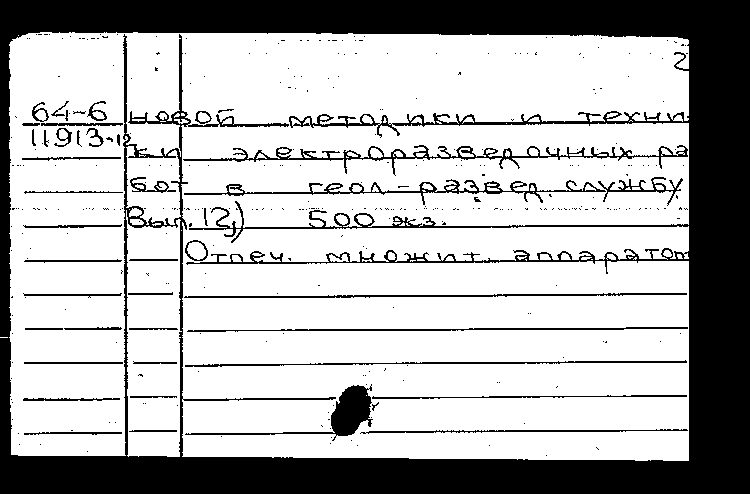 2
64-6 новой методики и техни-
11913-12 ки электроразведочных ра
бот в геол-развед. службу.
Вып. 12,) 500 экз.
Отпеч. множит. аппаратом